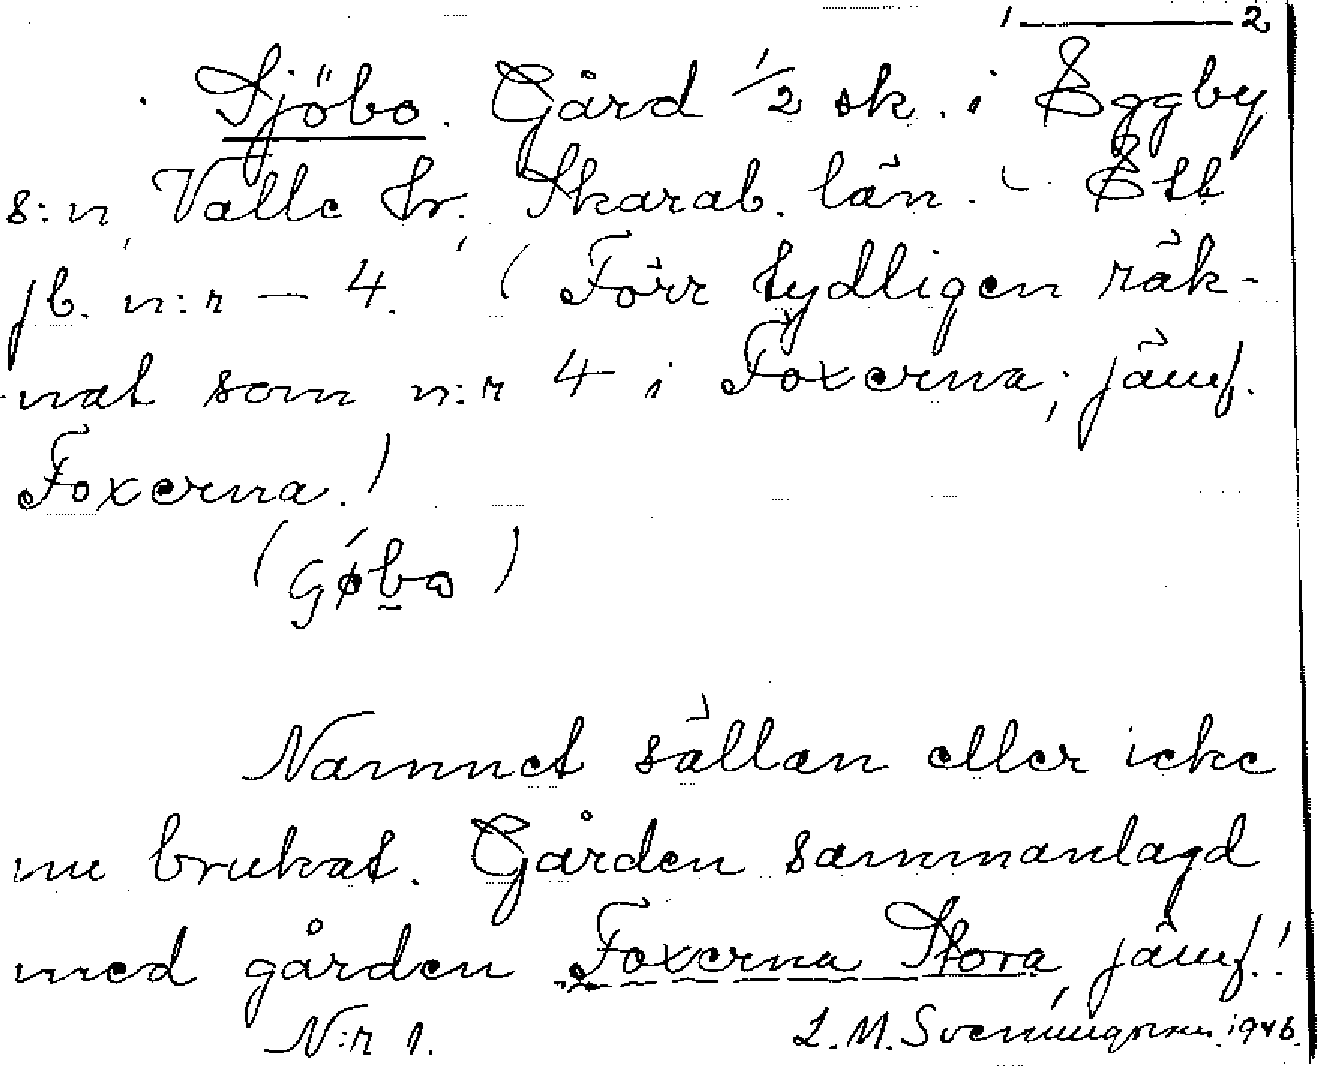 1 — 2
Sjöbo. Gård 1/2 sk. i Eggby
s:n, Valle hr, Skarab. län. - Ett
jb. n:r — 4. (Förr tydligen räk-
nat som n:r 4 i Foxerna; jämf.
Foxerna.)
(Gøbo)
Namnet sällan eller icke
nu brukat. Gården sammanlagd
med gården Foxerna Stora, jämf.!
N:r 1. L. M. Svenungsson. 1946.